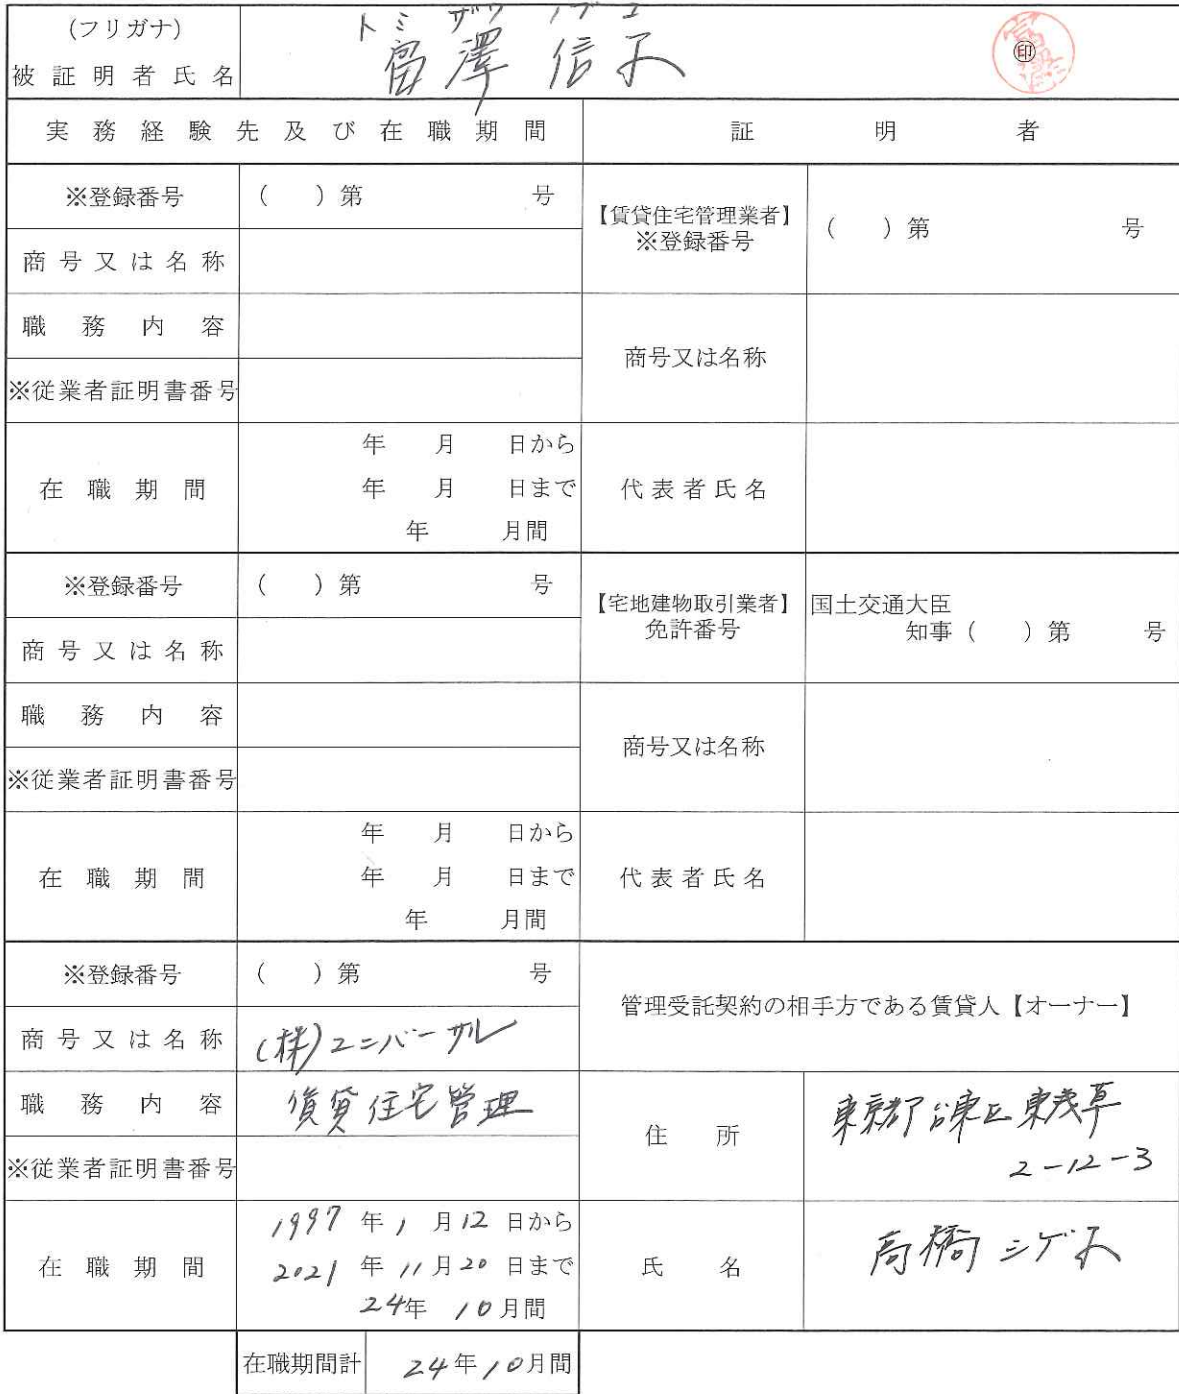 (フリガナ) トミ ザワ ノブコ
被証明者氏名 富澤 信子 ㊞
実務経験先及び在職期間 証明者
※登録番号 ( )第 号 【賃貸住宅管理業者】
※登録番号 ( )第 号
商号又は名称
職務内容
商号又は名称
※従業者証明書番号
在職期間 年 月 日から
年 月 日まで
年 月間
代表者氏名
※登録番号 ( )第 号
【宅地建物取引業者】
免許番号
国土交通大臣
知事( )第 号
商号又は名称
職務内容
商号又は名称
※従業者証明書番号
在職期間 年 月 日から
年 月 日まで
年 月間
代表者氏名
※登録番号 ( )第 号
管理受託契約の相手方である賃貸人【オーナー】
商号又は名称 (株)ユニバーサル
職務内容 賃貸住宅管理
※従業者証明書番号
住所 東京都台東区東浅草
2-12-3
在職期間 1997年1月12日から
2021年11月20日まで
24年10月間
氏名 高橋シゲ子
在職期間計 24年10月間